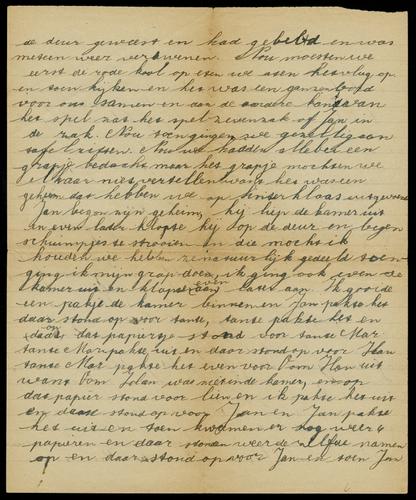 de deur geweest en had gebeld en was
meteen weer verdwenen. Nou moesten we
eerst de rode kool op eten we aten het vlug op
en toen kijken en het was een ganzenbord
voor ons samen en aan de andere kant van
het spel zat het spel zevenzak of Jan in
de zak. Nou toen gingen we gezellig aan
tafel zitten. Nou we hadden allebei een
grapje bedacht maar het grapje mochten we
elkaar niet vertellen want het was een
geheim dat hebben we op sinterklaas uitgevoerd
Jan begon zijn geheim, hij liep de kamer uit
en even later klopte hij op de deur en begon
schuimpjes te strooien en die mocht ik
houden we hebben ze natuurlijk gedeeld toen
ging ik mijn grap doen, ik ging ook even de
kamer uit en klopte even later aan. Ik gooide
een pakje de kamer binnen en Jan pakte het
daar stond op voor tante, tante pakte het en
daar op dat papiertje stond voor tante Mar
tante Mar pakte, uit en daar stond op voor Han
tante Mar pakte het even voor Oom Han uit
want Oom Johan was niet in de kamer, en op
dat papier stond voor Lien en ik pakte het uit
en daar stond op voor Jan en Jan pakte
het uit en toen kwamen er nog weer 4
papieren en daar stonden weer de zelfde namen
op en daar stond op voor Jan en toen Jan